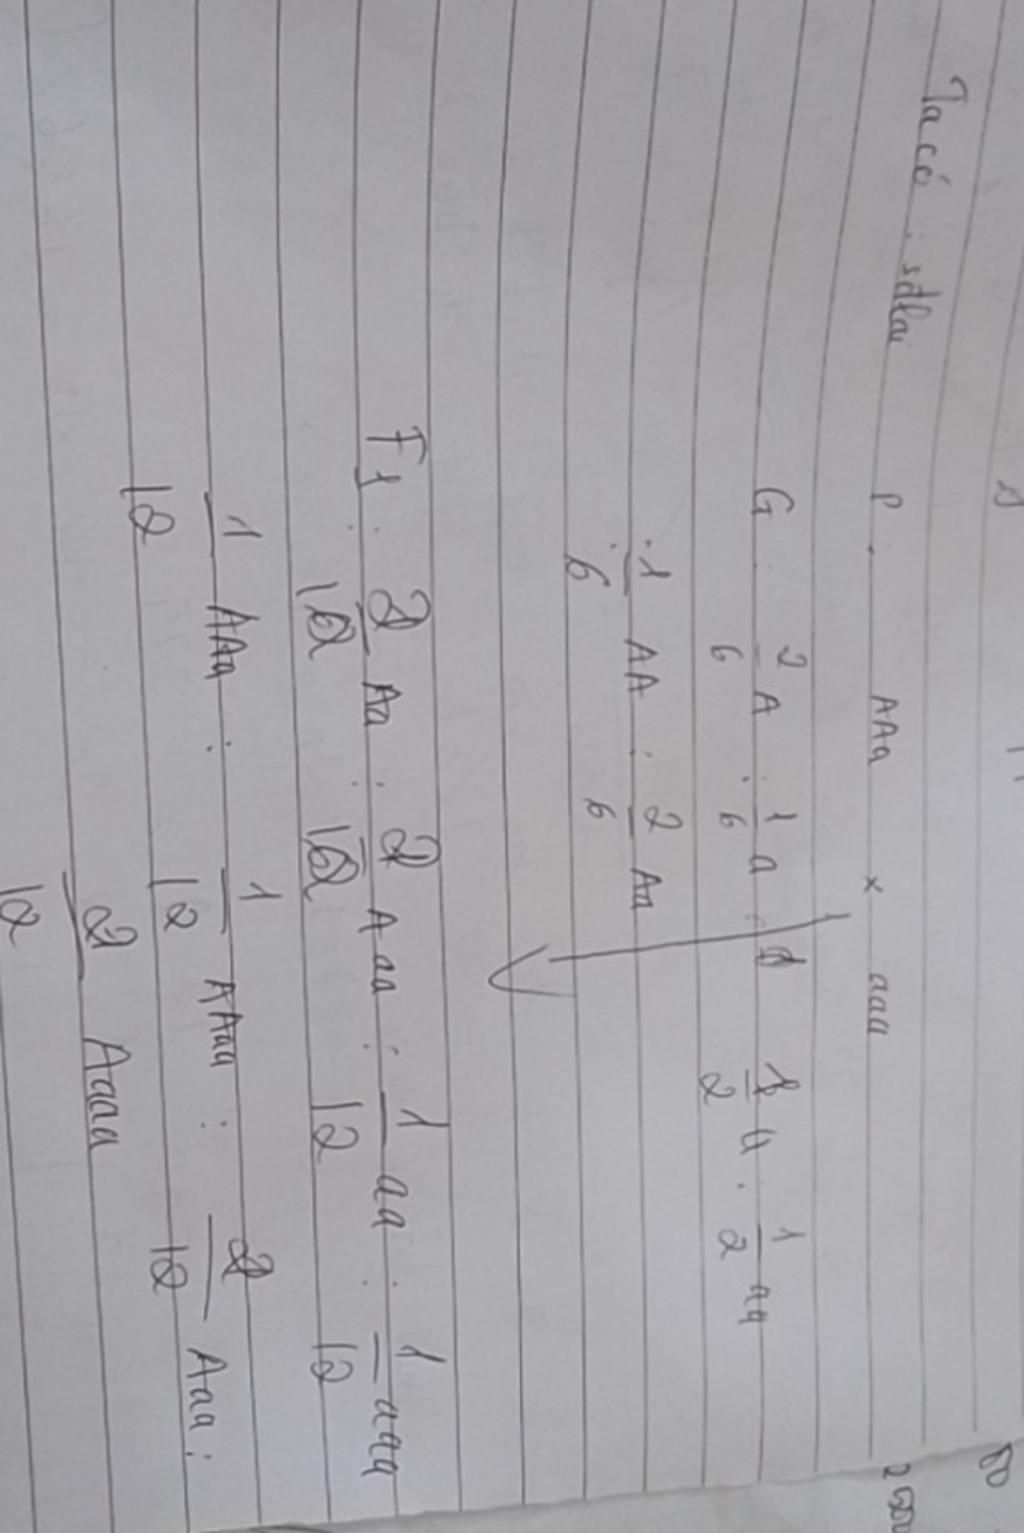 Ta có : sđlai P : AAa x aaa
G : 2/6 A : 1/6 a 1/2 a : 1/2 aa
1/6 AA : 2/6 Aa
F1 : 2/12 Aa : 2/12 Aaa : 1/12 aa : 1/12 aaa
1/12 AAa : 1/12 AAaa : 2/12 Aaa :
2/12 Aaaa